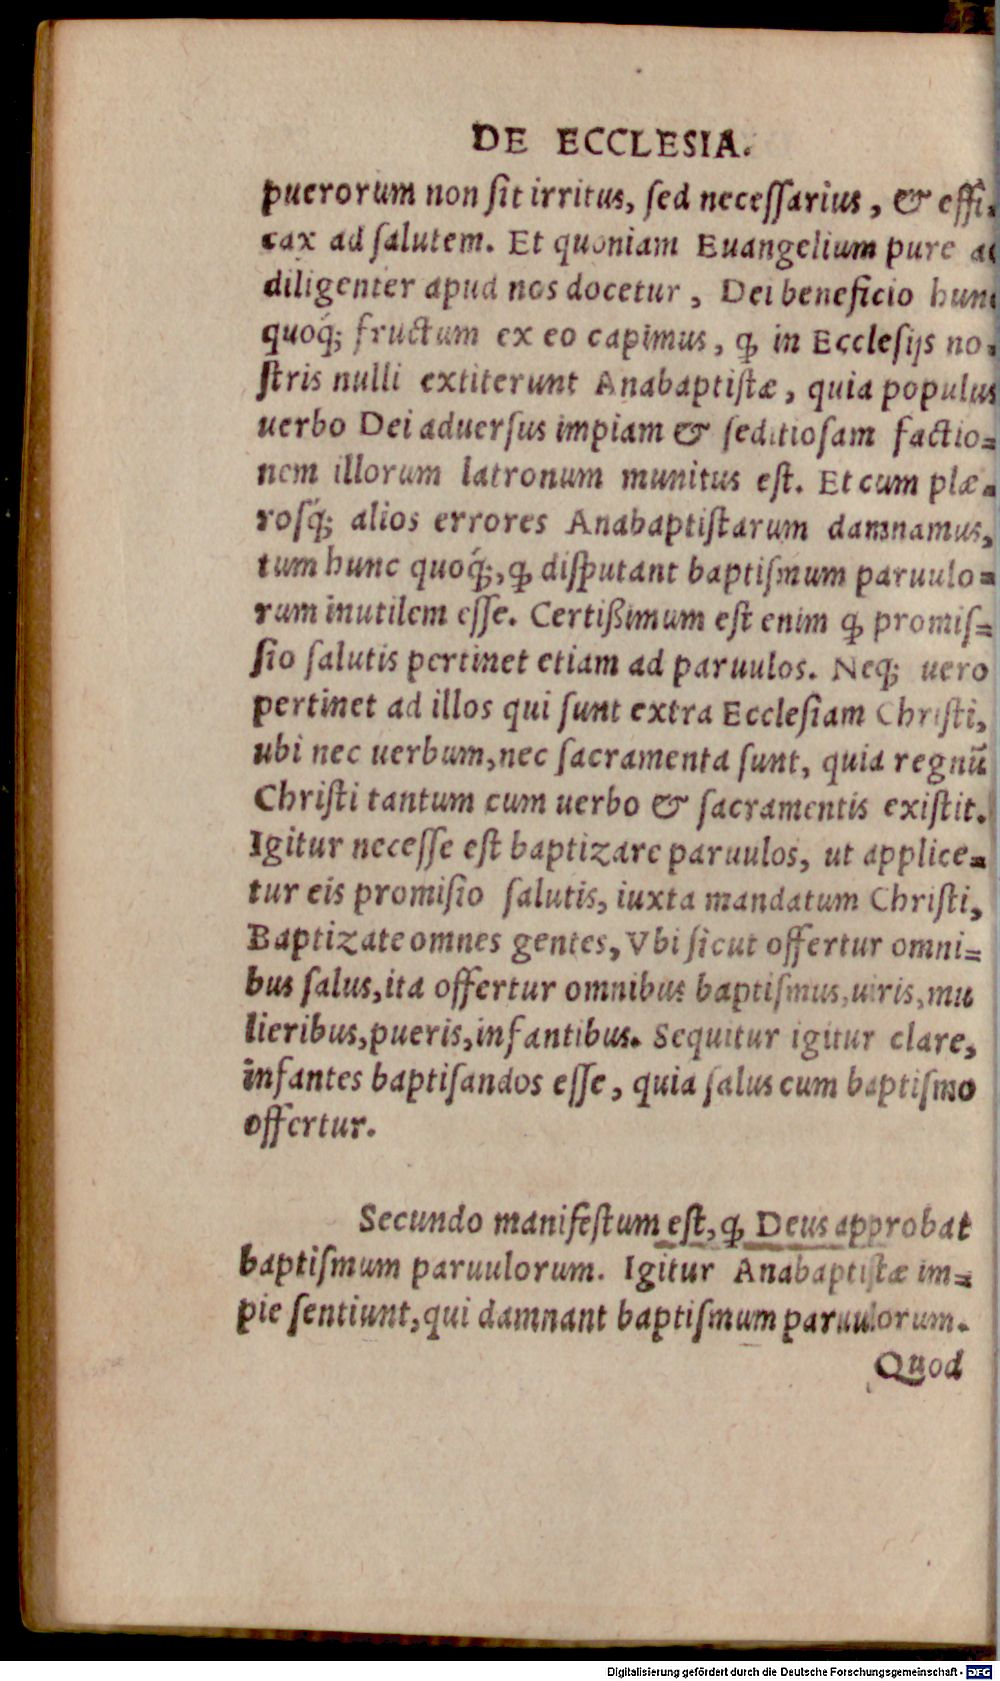 DE ECCLESIA.
puerorum non ſit irritus, ſed neceſſarius, & effi-
cax ad ſalutem. Et quoniam Euangelium pure ac
diligenter apud nos docetur, Dei beneficio hunc
quoq́; fructum ex eo capimus, ꝙ in Eccleſijs no-
ſtris nulli extiterunt Anabaptiſtæ, quia populus
uerbo Dei aduerſus impiam & ſeditioſam factio-
nem illorum latronum munitus eſt. Et cum plæ-
roſq́; alios errores Anabaptiſtarum damnamus,
tum hunc quoq́;, ꝙ diſputant baptiſmum paruulo-
rum inutilem eſſe. Certißimum eſt enim ꝙ promiſ-
ſio ſalutis pertinet etiam ad paruulos. Neq; uero
pertinet ad illos qui ſunt extra Eccleſiam Chriſti,
ubi nec uerbum, nec ſacramenta ſunt, quia regnū
Chriſti tantum cum uerbo & ſacramentis exiſtit.
Igitur neceſſe eſt baptizare paruulos, ut applice-
tur eis promiſio ſalutis, iuxta mandatum Chriſti,
Baptizate omnes gentes, Vbi ſicut offertur omni-
bus ſalus, ita offertur omnibus baptiſmus, uiris, mu
lieribus, pueris, infantibus. Sequitur igitur clare,
infantes baptiſandos eſſe, quia ſalus cum baptiſmo
offertur.
Secundo manifeſtum eſt, ꝙ Deus approbat
baptiſmum paruulorum. Igitur Anabaptiſtæ im-
pie ſentiunt, qui damnant baptiſmum paruulorum.
Quod
Digitalisierung gefördert durch die Deutsche Forschungsgemeinschaft - DFG